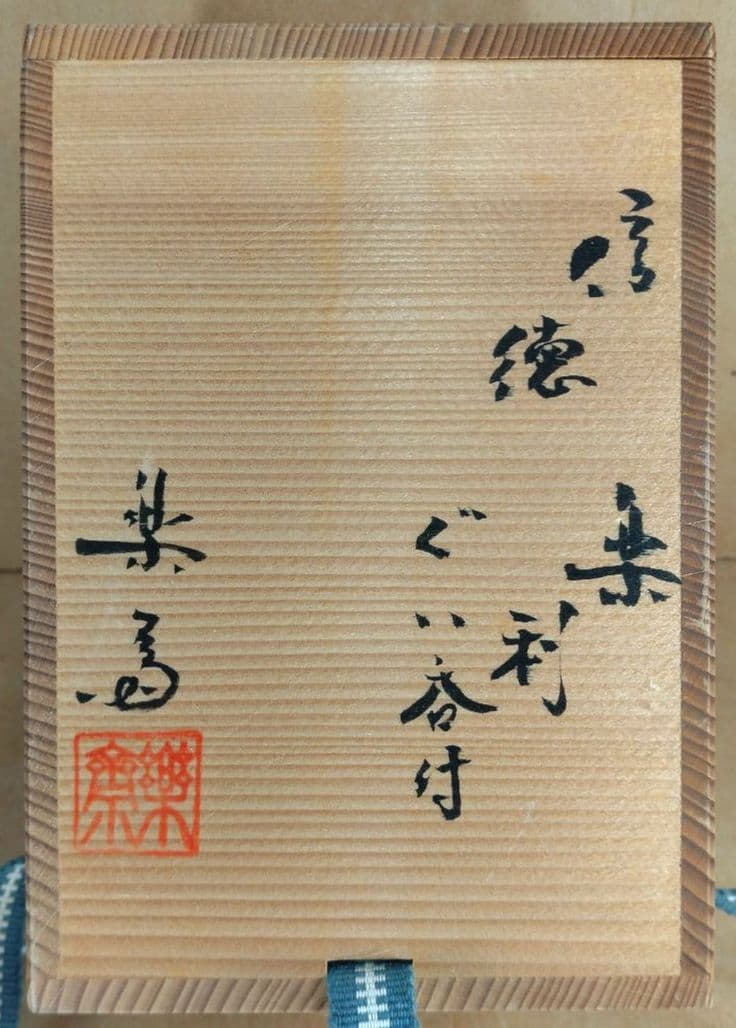 信楽
徳利
ぐい呑付
楽斎
樂齋